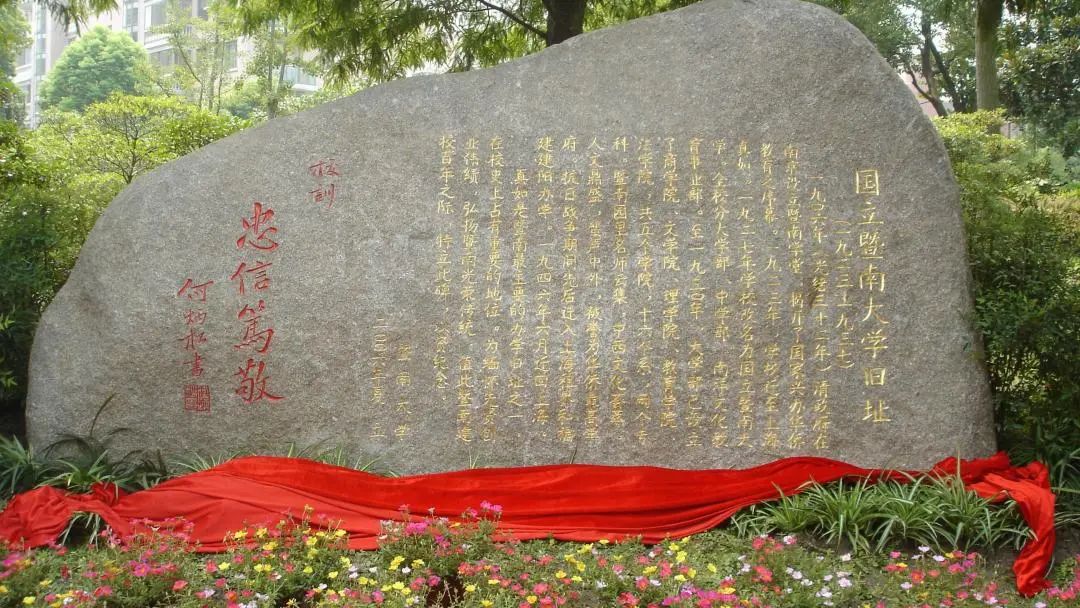 国立暨南大学旧址
(一九二三—一九三七)
一九〇六年(光绪三十二年)清政府在
南京设立暨南学堂,揭开了国家兴办华侨
教育之序幕。一九二三年,学校迁至上海
真如。一九二七年学校改名为国立暨南大
学,全校分大学部、中学部、南洋文化教
育事业部。至一九三〇年,大学部已设立
了商学院、文学院、理学院、教育学院、
法学院,共五个学院,十六个系,两个专
科。暨南园里名师云集,中西文化荟萃,
人文鼎盛,蜚声中外,被誉为华侨最高学
府。抗日战争期间先后迁入上海租界和福
建建阳办学。一九四六年六月迁回上海。
真如是暨南最主要的办学旧址之一,
在校史上占有重要的地位。为缅怀先贤创
业伟绩,弘扬暨南光荣传统,值此暨南建
校百年之际,特立此碑,以资纪念。
暨南大学
二〇〇六年夏 立
校训
忠信笃敬
何炳松书